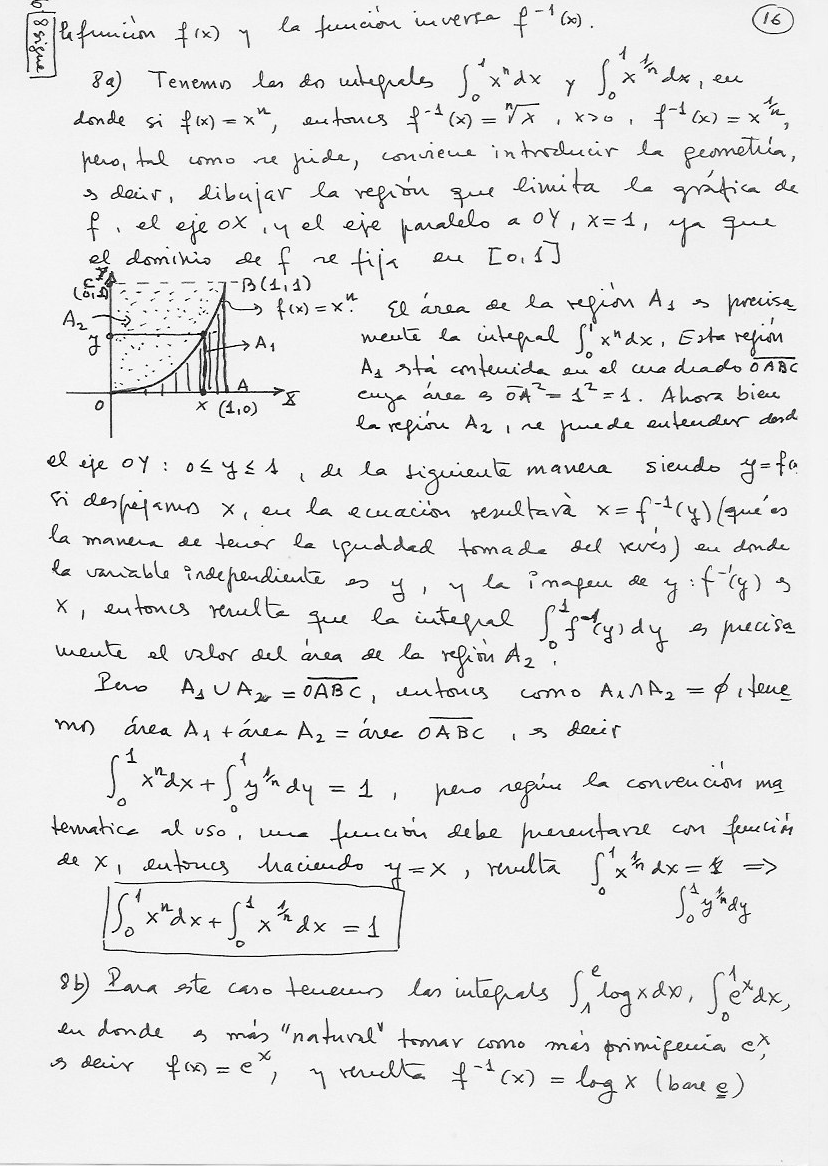 16
8 sigue
la función f(x) y la función inversa f⁻¹(x).
8a) Tenemos las dos integrales ∫₀¹ xⁿdx y ∫₀¹ x^{1/n}dx, en
donde si f(x) = xⁿ, entonces f⁻¹(x) = ⁿ√x, x>0, f⁻¹(x) = x^{1/n},
pero, tal como se pide, conviene introducir la geometría,
es decir, dibujar la región que limita la gráfica de
f, el eje OX, y el eje paralelo a OY, x=1, ya que
el dominio de f se fija en [0,1]
C Y
(0,1)
B(1,1)
f(x) = xⁿ.
A₂
y
A₁
A
O
x (1,0) X
El área de la región A₁ es precisa
mente la integral ∫₀¹ xⁿdx, Esta región
A₁ está contenida en el cuadrado OABC
cuya área es OA² = 1² = 1. Ahora bien
la región A₂, se puede entender desd
el eje OY: 0≤y≤1, de la siguiente manera siendo y=f(
si despejamos x, en la ecuación resultará x = f⁻¹(y) (que es
la manera de tener la igualdad tomada del revés) en donde
la variable independiente es y, y la imagen de y: f⁻¹(y) es
x, entonces resulta que la integral ∫₀¹ f⁻¹(y)dy es precisa
mente el valor del área de la región A₂.
Pero A₁∪A₂ = OABC, entonces como A₁∩A₂ = ∅, tene
mos área A₁ + área A₂ = área OABC, es decir
∫₀¹ xⁿdx + ∫₀¹ y^{1/n}dy = 1, pero según la convención ma
temática al uso, una función debe presentarse con función
de x, entonces haciendo y=x, resulta ∫₀¹ x^{1/n}dx = ⇒
∫₀¹ y^{1/n}dy
∫₀¹ xⁿdx + ∫₀¹ x^{1/n}dx = 1
8b) Para este caso tenemos las integrals ∫₁ᵉ log x dx, ∫₀¹ eˣdx,
en donde es más "natural" tomar como más primigenia eˣ,
es decir f(x) = eˣ, y resulta f⁻¹(x) = log x (base e)